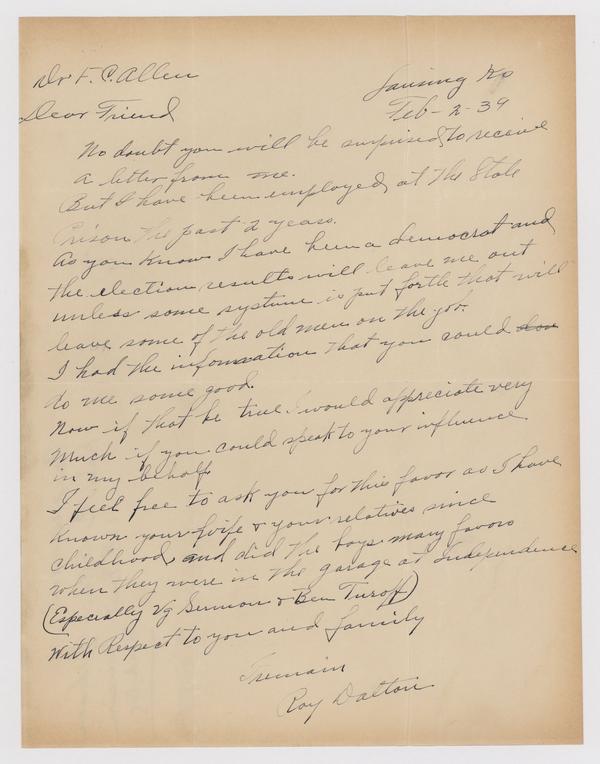 Dr F. C. Allen
Lansing Ks
Feb-2-39
Dear Friend
No doubt you will be surprised to receive
a letter from me.
But I have been employed at the State
Prison the past 2 years.
As you know I have been a democrat and
the election results will leave me out
unless some systum is put forth that will
leave some of the old men on the job.
I had the information that you could
do me some good.
Now if that be true I would appreciate very
much if you could speak to your influence
in my behalf.
I feel free to ask you for this favor as I have
known your wife & your relatives since
childhood and did the boys many favors
when they were in the garage at Independence
(Especially Vg Sermon & Ben Turoff)
With Respect to you and family
I remain
Roy Dalton